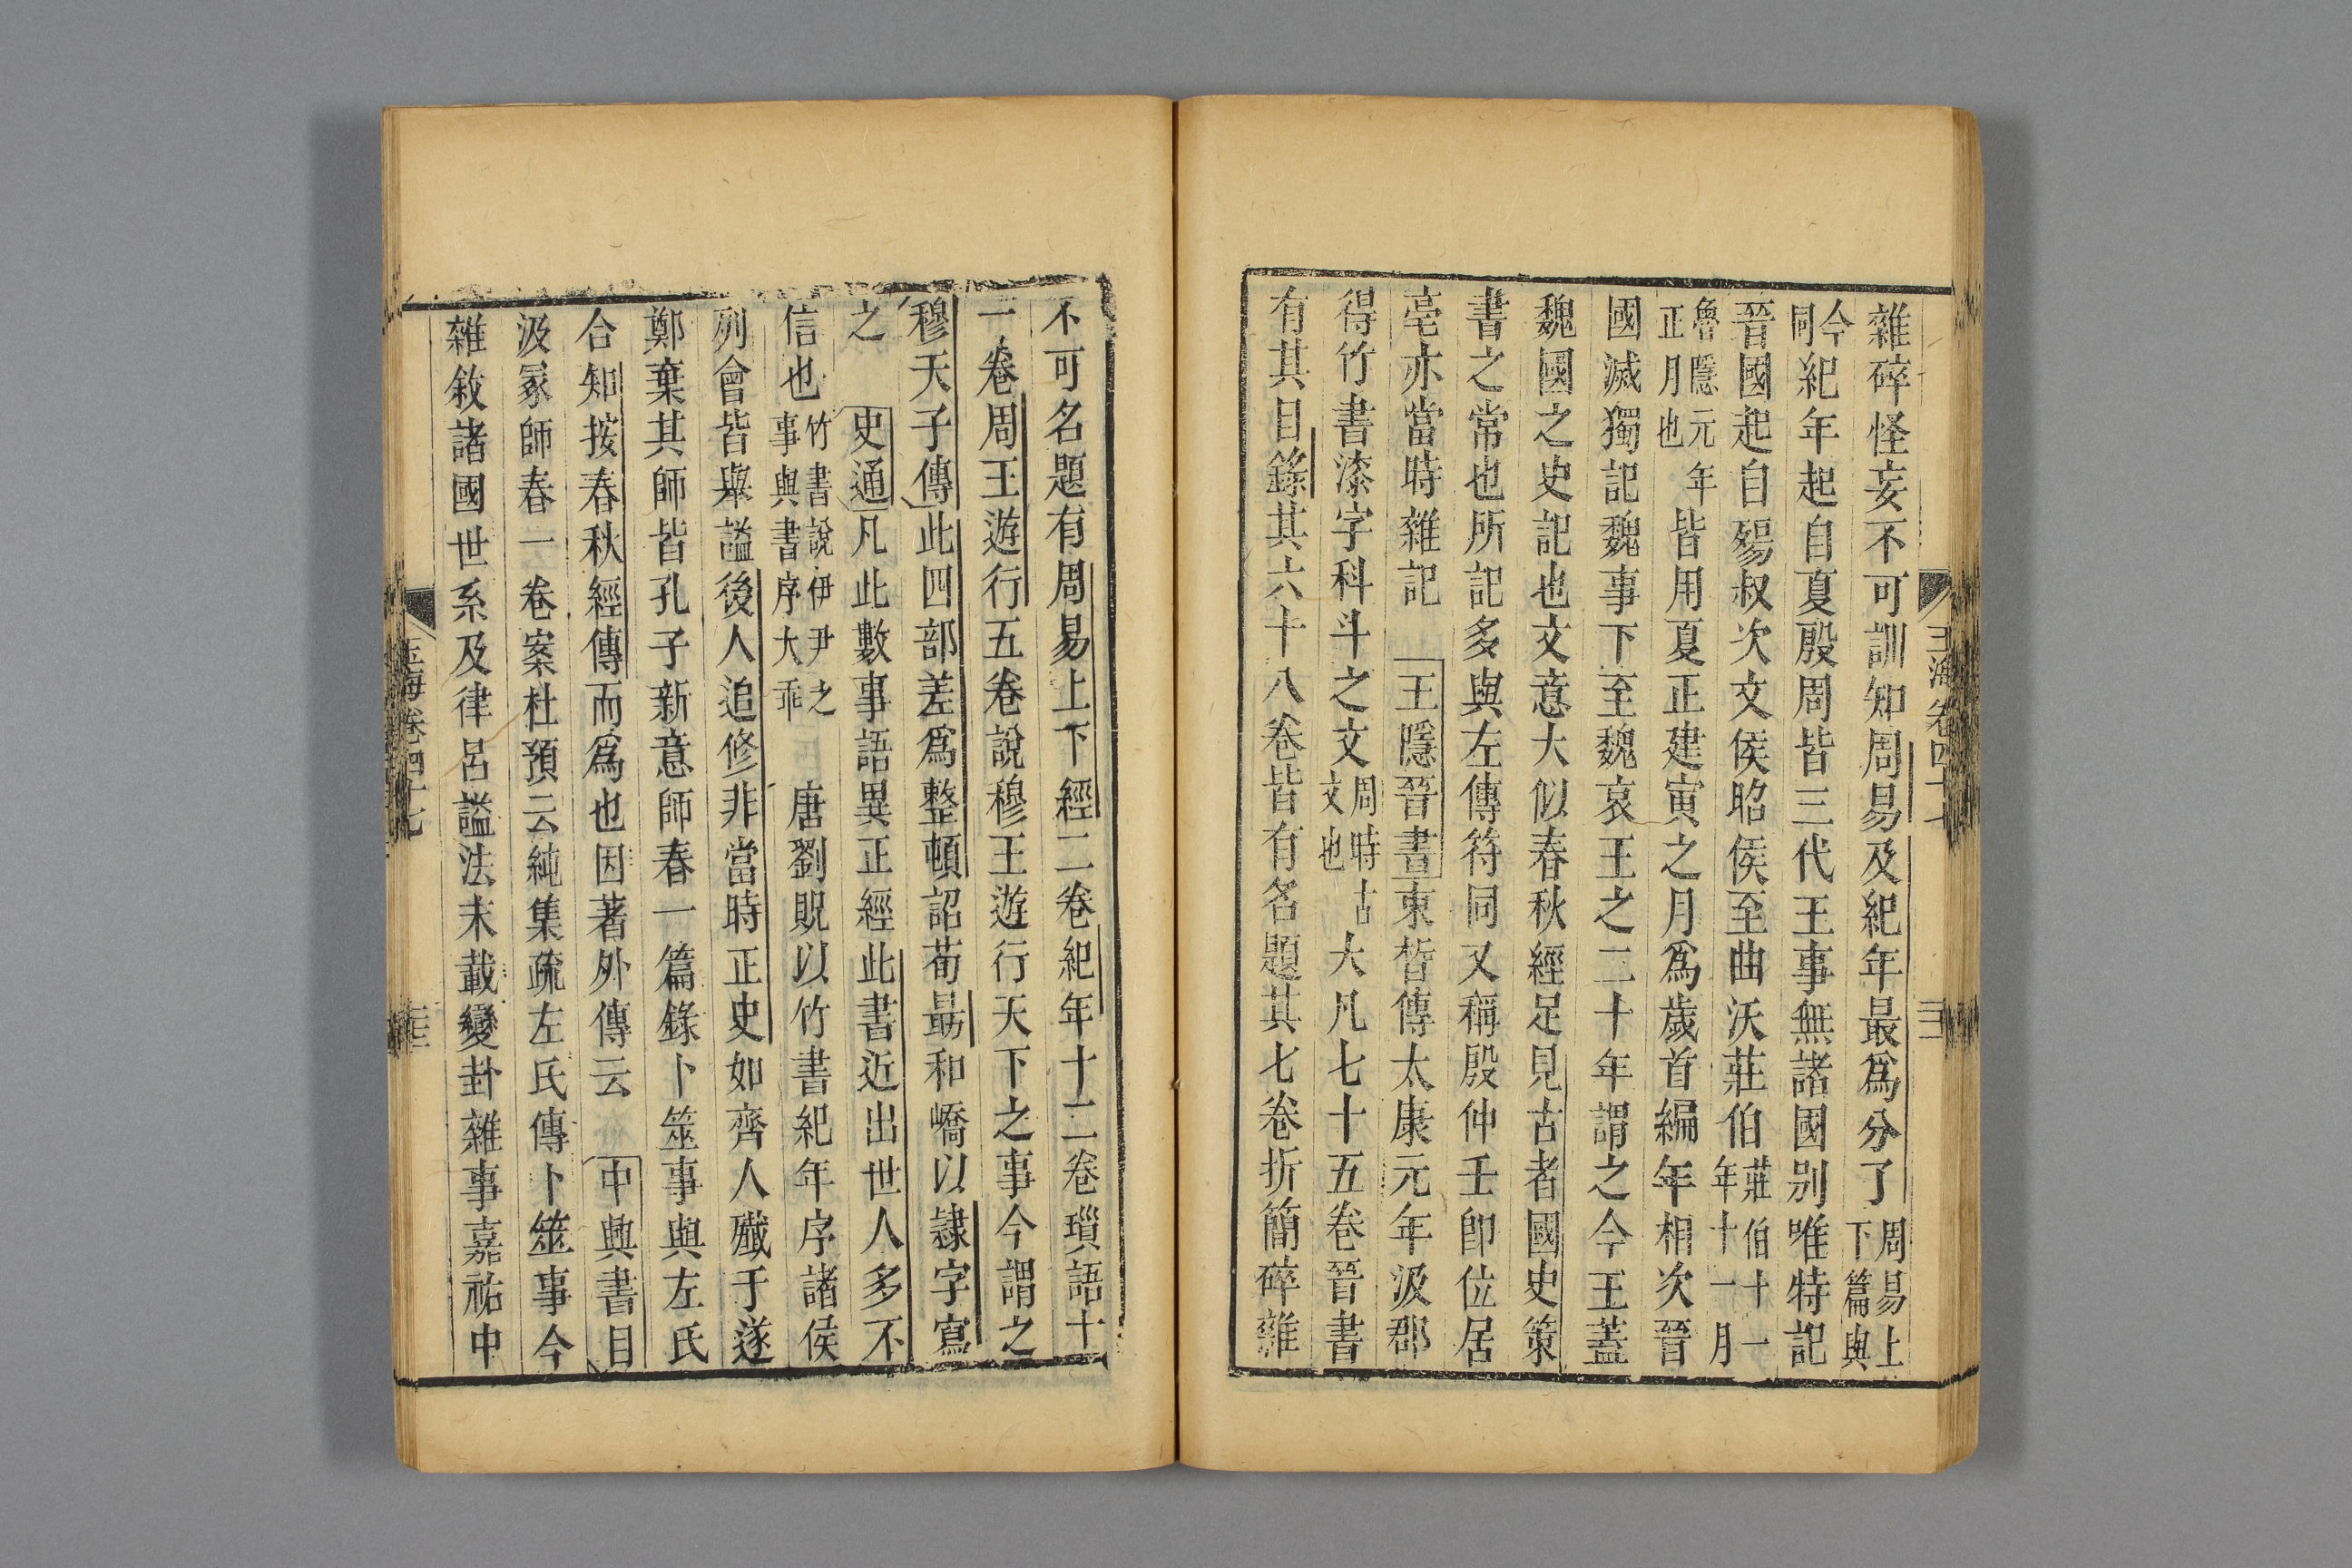 雜碎怪妄不可訓知周易及紀年最爲分了周易上下篇與
今同紀年起自夏殷周皆三代王事無諸國别唯特記
晉國起自殤叔次文侯昭侯至曲沃莊伯莊伯十一年十一月
魯隱元年正月也皆用夏正建寅之月爲歲首編年相次晉
國滅獨記魏事下至魏哀王之二十年謂之今王蓋
魏國之史記也文意大似春秋經足見古者國史策
書之常也所記多與左傳符同又稱殷仲壬卽位居
亳亦當時雜記 王隱晉書束晳傳太康元年汲郡
得竹書漆字科斗之文周時古文也大凡七十五卷晉書
有其目錄其六十八卷皆有名題其七卷折簡碎雜
玉海卷四十七
不可名題有周易上下經二卷紀年十二卷瑣語十
一卷周王遊行五卷說穆王遊行天下之事今謂之
穆天子傳此四部差爲整頓詔荀勗和嶠以隷字寫
之 史通凡此數事語異正經此書近出世人多不
信也竹書說伊尹之事與書序大乖 唐劉貺以竹書紀年序諸侯
列會皆舉謚後人追修非當時正史如齊人殲于遂
鄭棄其師皆孔子新意師春一篇錄卜筮事與左氏
合知按春秋經傳而爲也因著外傳云 中興書目
汲冢師春一卷案杜預云純集疏左氏傳卜筮事今
雜敘諸國世系及律呂謚法末載變卦雜事嘉祐中
玉海卷四十七